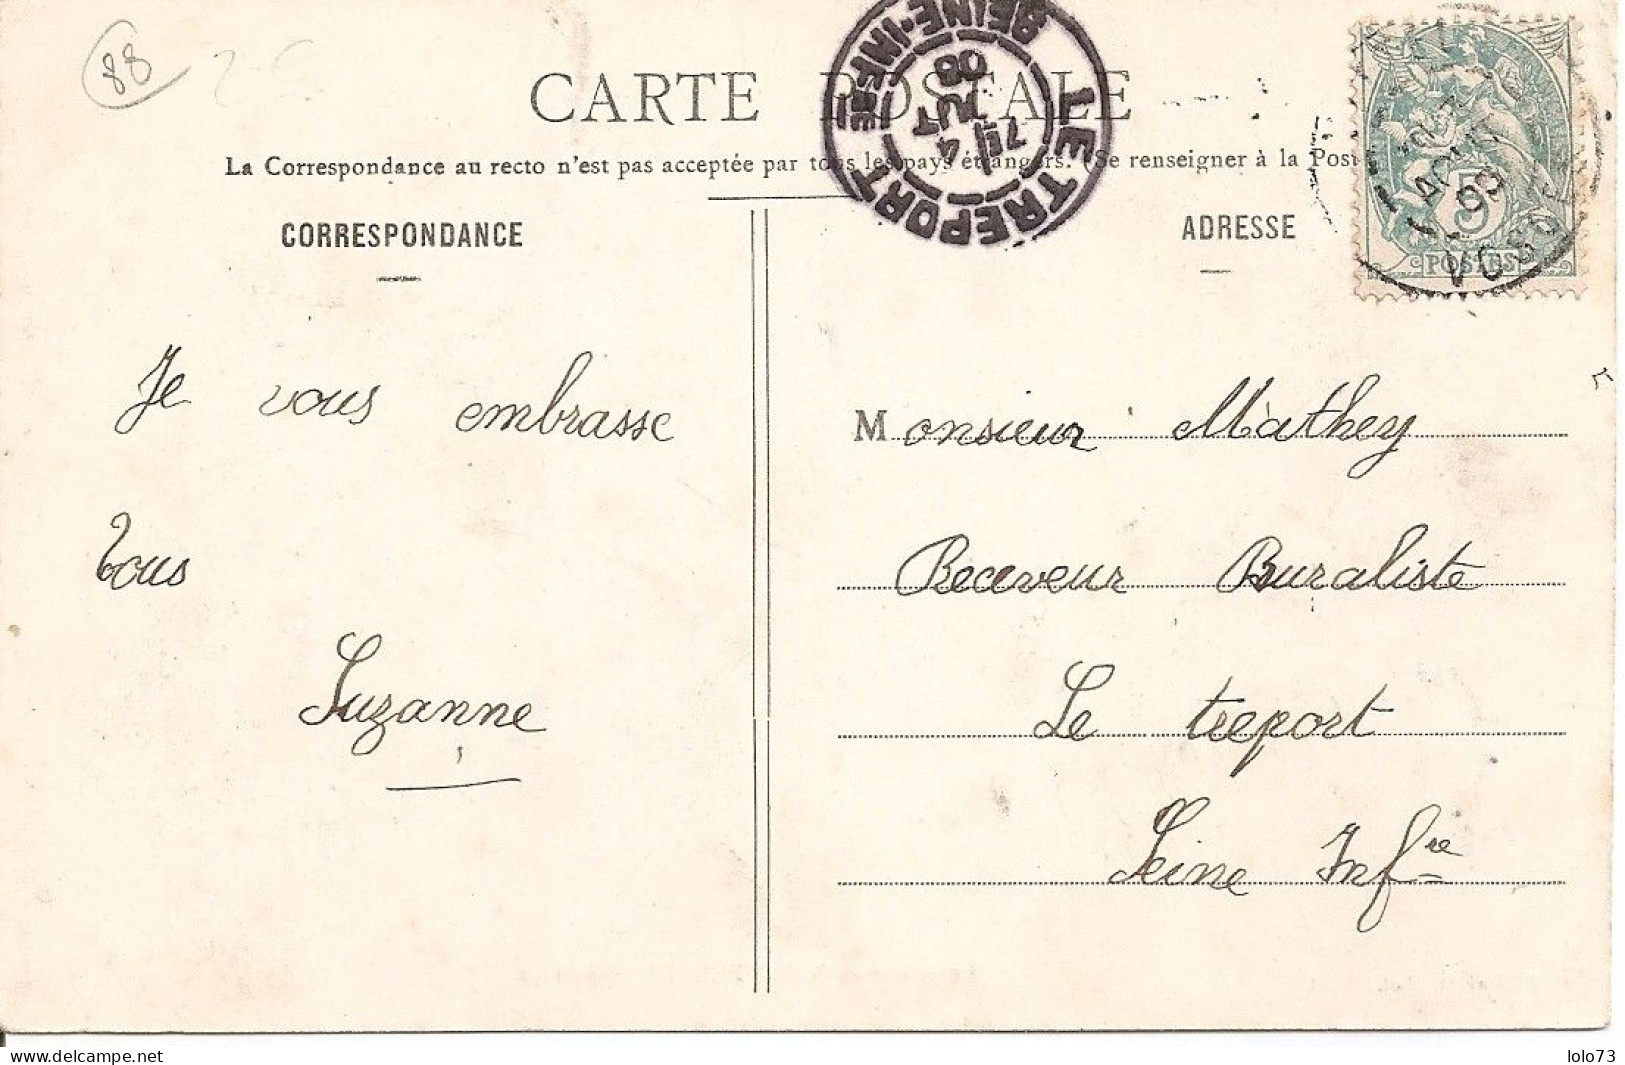 88
CARTE POSTALE
La Correspondance au recto n'est pas acceptée par tous les pays étrangers. (Se renseigner à la Post
LE TREPORT
SEINE-INFRE
4
08
CORRESPONDANCE
ADRESSE
5
POSTES
VOSGES
Je vous embrasse
Tous
Suzanne
Monsieur Mathey
Receveur Buraliste
Le treport
Seine Infre
delcampe.net
lolo73